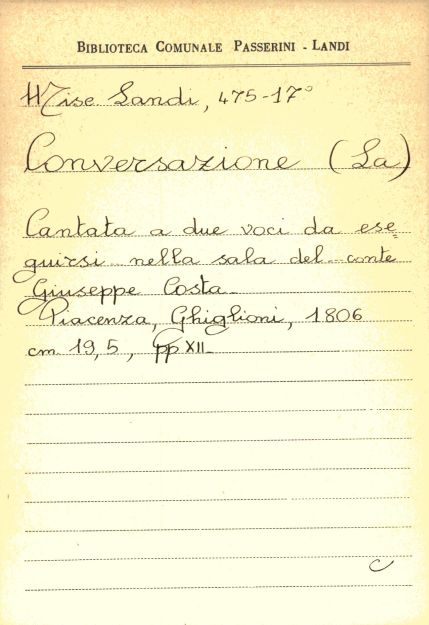 BIBLIOTECA COMUNALE PASSERINI - LANDI
Mise Landi, 475-17°
Conversazione (La)
Cantata a due voci da ese=
guirsi nella sala del conte
Giuseppe Costa_
Piacenza, Ghiglioni, 1806
cm 19,5, pp XII_
C